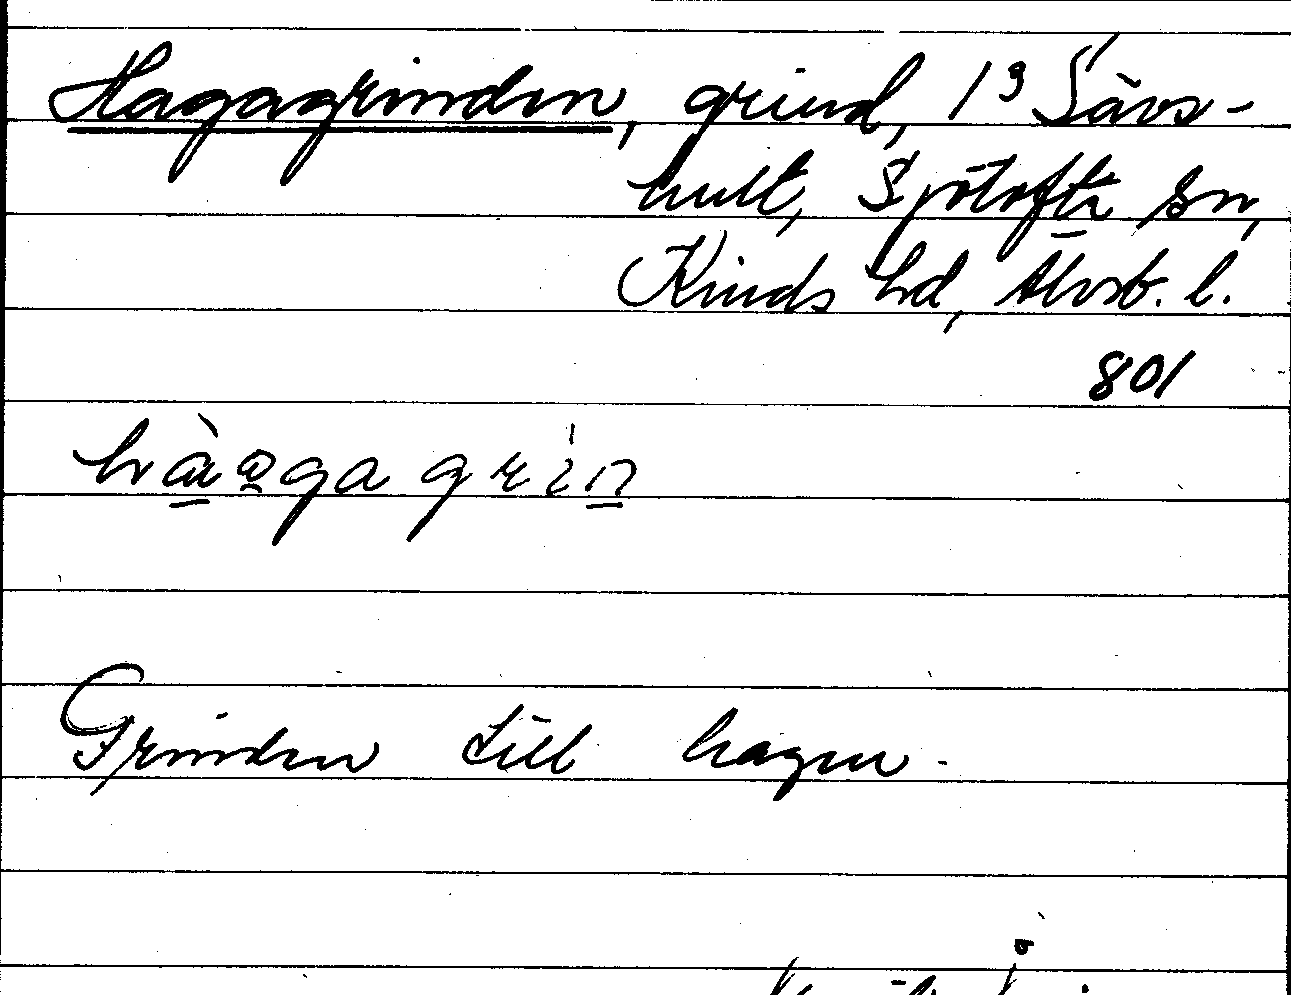 Hagagrinden, grind, 1³ Sävs-
hult, Sjötofta sn,
Kinds hd, Älvsb. l.
801
Grinden till hagen.